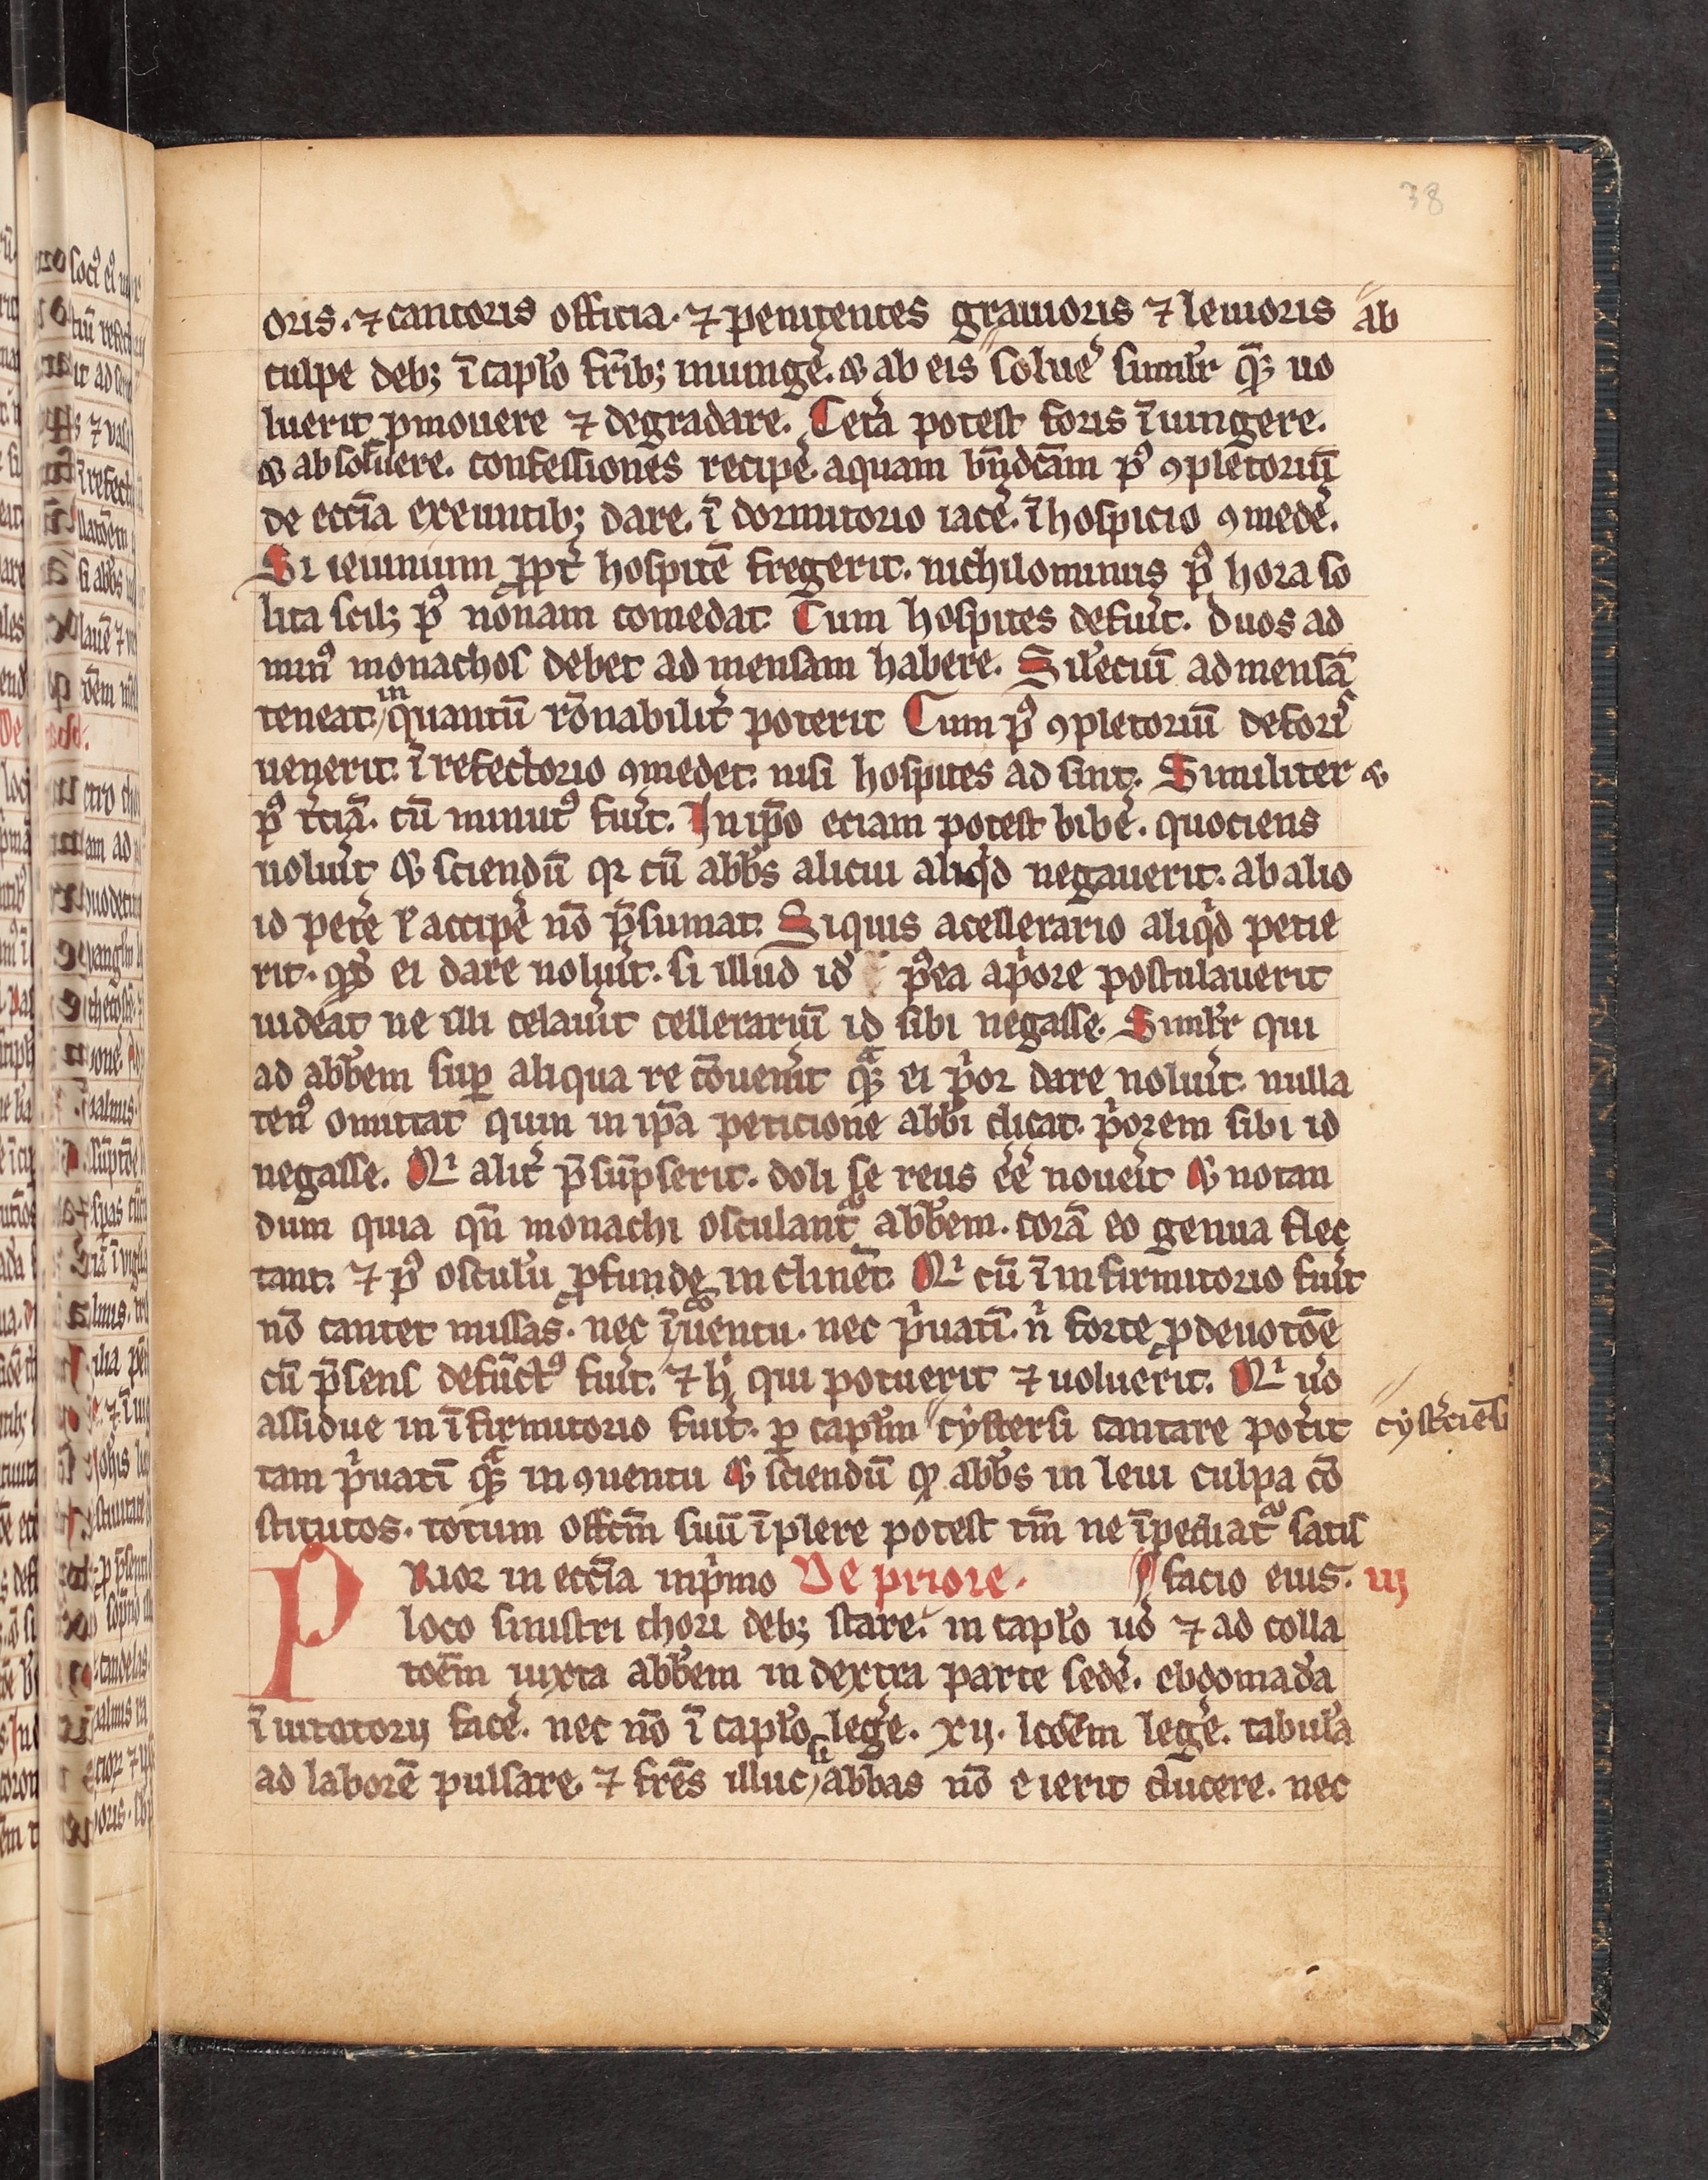 38
oris · ⁊ cantoris officia · ⁊ penitentes grauioris ⁊ leuioris ab
culpe deb; ī caplo frīb; iniungē. & ab eis soluē similr q̄ uo
luerit pmouere ⁊ degradare. Cetā potest foris īiungere.
& absoluere. confessiones recipē. aquam bn̄dcām pꝰ ꝯpletoriū
de eccīa exeuntib; dare. ī dormitorio iacē. ī hospicio ꝯmedē.
Si ieiunium ꝓpt hospitē fregerit. nichilominus pꝰ hora so
lita scil; pꝰ nonam comedat. Cum hospites defuīt. duos ad
minꝰ monachos debet ad mensam habere. Sileciū ad mensā
teneat, in quantū rōnabilit poterit Cum pꝰ ꝯpletoriū deforꝭ
uenerit. ī refectorio ꝯmedet. nisi hospites ad sint. Similiter &
pꝰ tciā. cū minutꝰ fuīt. In ipo eciam potest bibē. quociens
uoluīt & sciendū qꝛ cū abbs alicui aliqͥd negauerit. ab alio
id petē l accipē nō p̄sumat. Siquis acellerario aliqͥd petie
rit. qͦd ei dare noluīt. si illud id pꝰea apͥore postulauerit
uideat ne illi celauīt cellerariū id sibi negasse. Similr qui
ad abbem suꝑ aliqua re cōuenīt qͣ ei pͥor dare noluīt. nulla
tenꝰ omittat quin in ipa peticione abbi dicat. pͥorem sibi id
negasse. Qͥ alit p̄sūpserit. doli se reus eē nouīt & notan
dum quia qn̄ monachi osculant abbem. corā eo genua flec
tant. ⁊ pꝰ osculu ꝓfunde inclinēt. Qͥ cū ī infirmitorio fuīt
nō cantet missas. nec ī ꝯuentu. nec pͥuatī. nͥ forte ꝓ deuotōe
cū p̄sens defūctꝰ fuīt. ⁊ hͥ qui potuerit ⁊ uoluerit. Qͥ uo
assidue in īfirmitorio fuīt. ꝑ caplm cystersi cantare potīt cystciēsi
tam pͥuatī qͣ in ꝯuentu & sciendū qͦ abbs in leui culpa cō
stitutos. totum offm̄ suū īplere potest tm̄ ne īpediat satis
PRior in eccīa inpͥmo De priore. ¶ facio eius. iij
loco sinistri chori deb; stare. in caplo uo ⁊ ad colla
toēm iuxta abbem in dextra parte sedē. ebdomada
īuitatorij facē. nec nō ī caplo legē. xij. lcōem legē. tabula
ad laborē pulsare. ⁊ frēs illuc, si abbas nō eierit ducere. nec